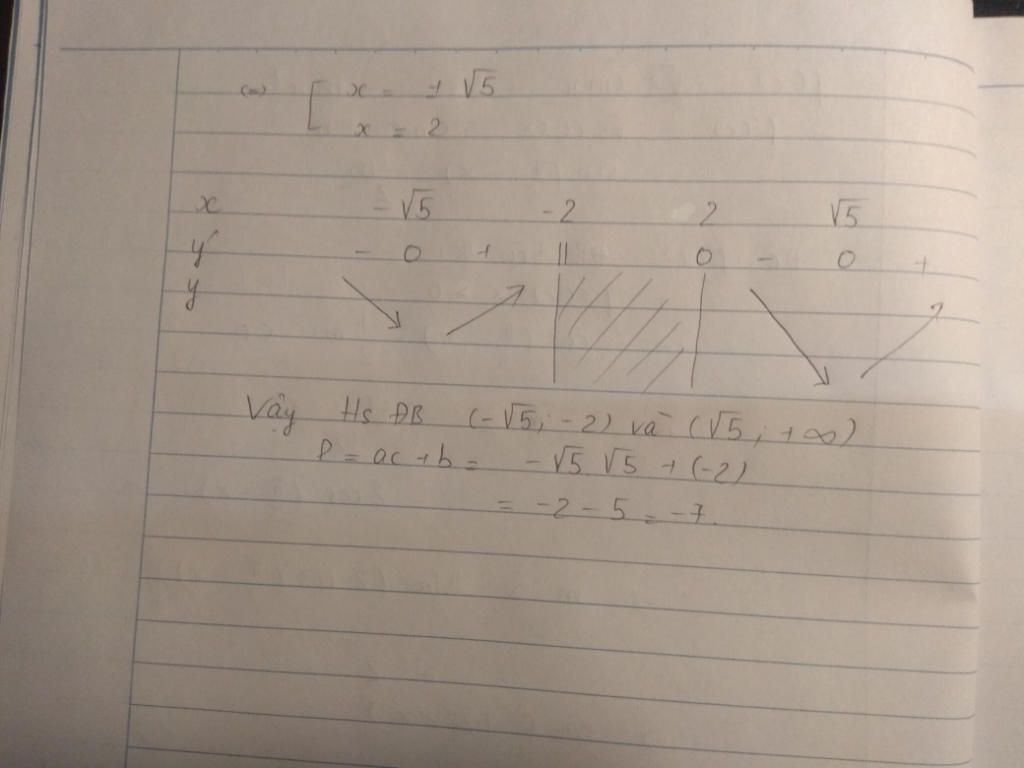 (=) [ x = ± √5
x = 2
x -√5 -2 2 √5
y' - 0 + || 0 - 0 +
y
Vậy Hs ĐB (-√5; -2) và (√5; +∞)
P = ac + b = -√5 √5 + (-2)
= -2 - 5 = -7.